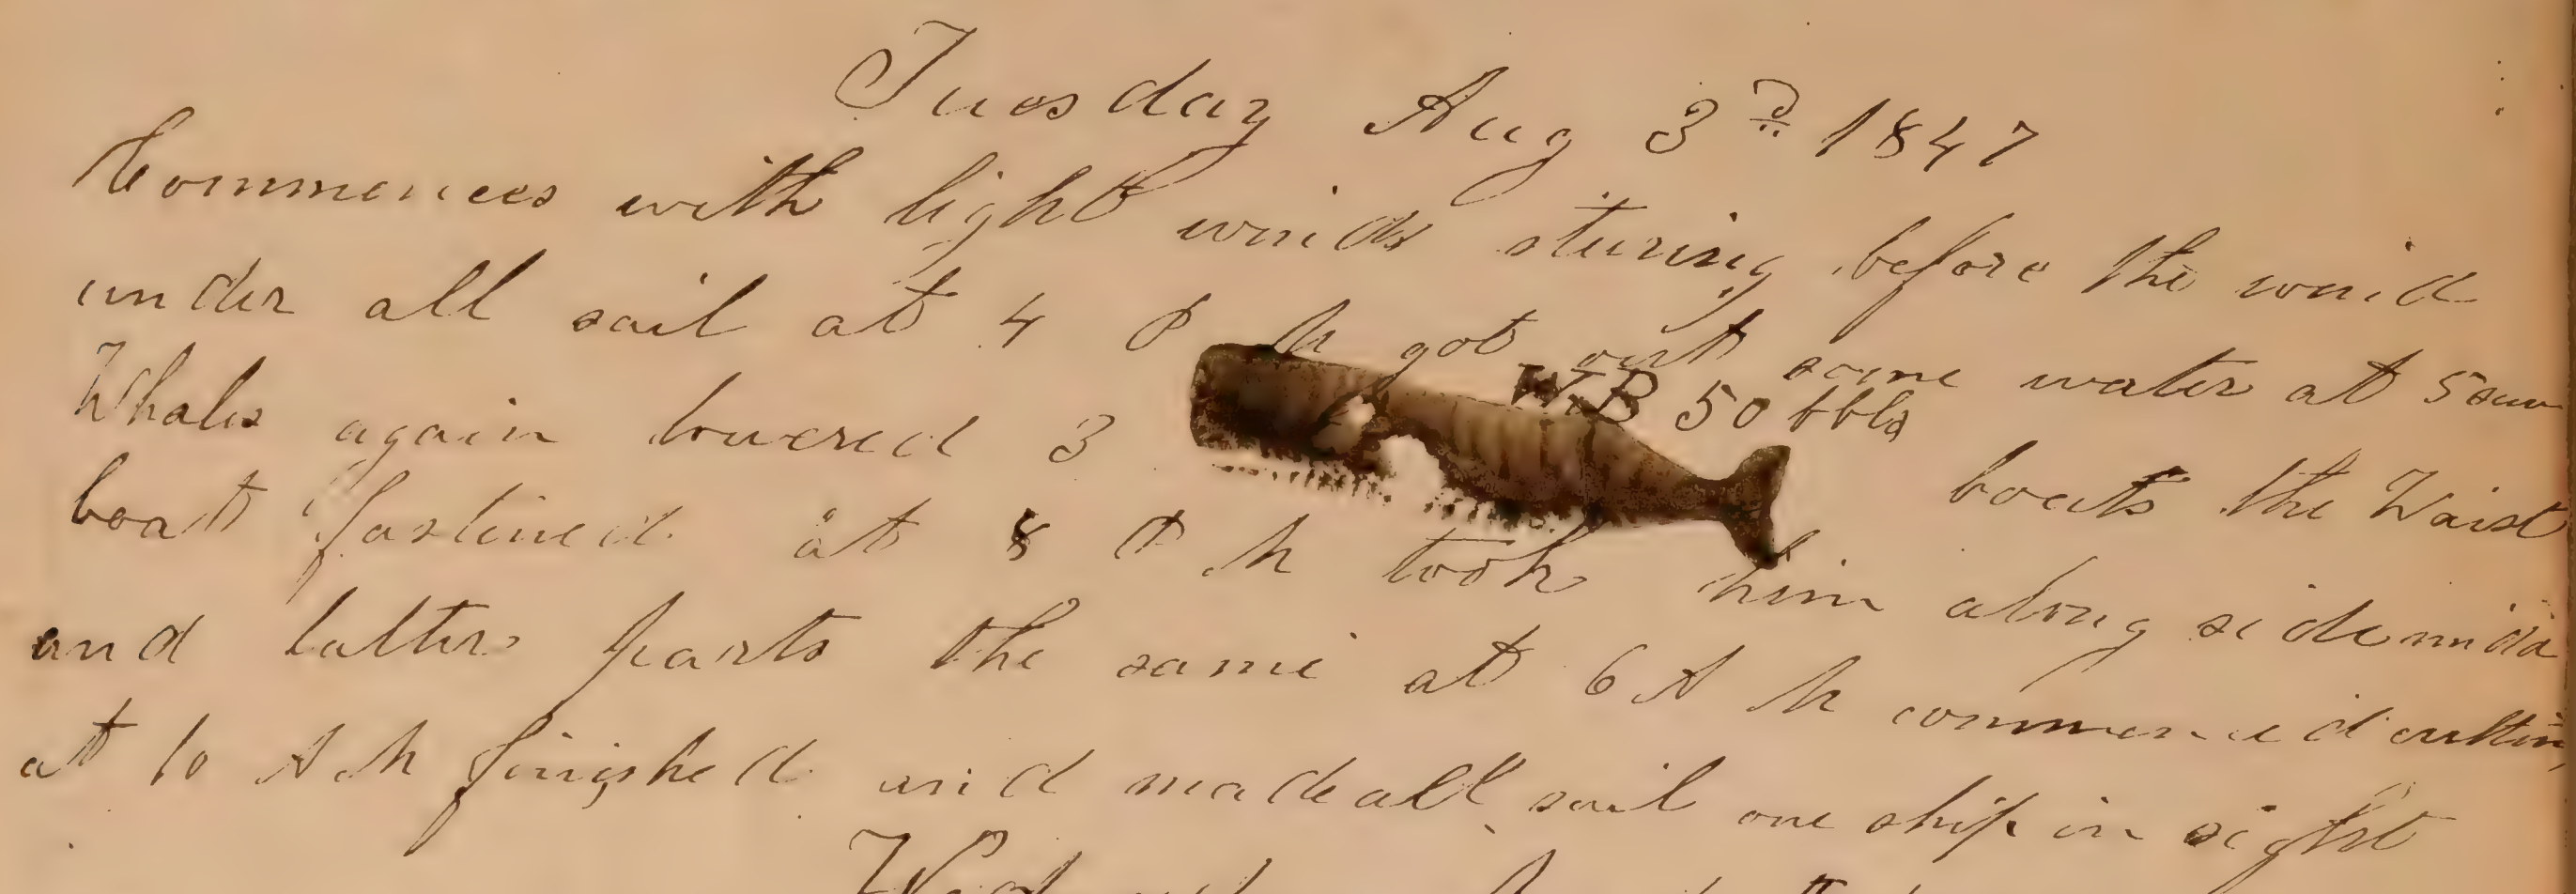 Tuesday Aug 3d 1847
Commences with light winds stering before the wind
under all sail at 4 P M got out some water at 5 saw
Whales again lowered 3 boats the Waist
WB 50 bbls
boat fastened at 8 P M took him along side midd
and latter parts the same at 6 A M commenced cutting
at 10 A M finished and made all sail one ship in sight